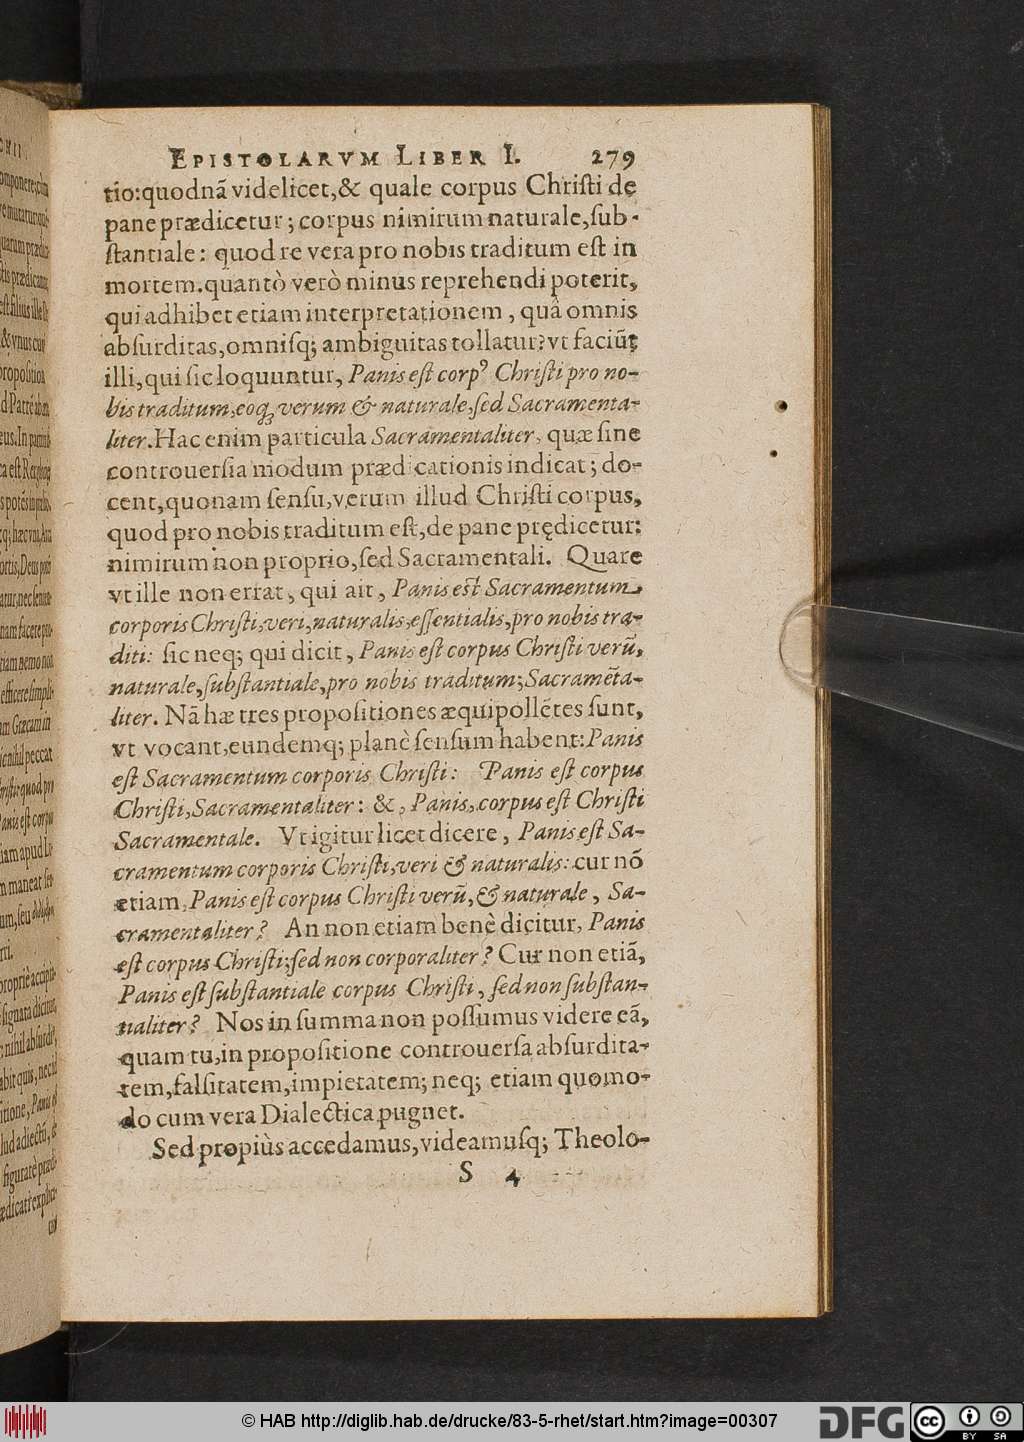 EPISTOLARVM LIBER I. 279
tio:quodnã videlicet,& quale corpus Chriſti de
pane prædicetur; corpus nimirum naturale,ſub-
ſtantiale: quod re vera pro nobis traditum eſt in
mortem.quantò verò minus reprehendi poterit,
qui adhibet etiam interpretationem, quâ omnis
abſurditas,omniſq; ambiguitas tollatur?vt faciũt
illi,qui ſic loquuntur, Panis eſt corpꝰ Chriſti pro no-
bis traditum,eoq; verum & naturale,ſed Sacramenta-
liter.Hac enim particula Sacramentaliter, quæ ſine
controuerſia modum prædicationis indicat; do-
cent,quonam ſenſu,verum illud Chriſti corpus,
quod pro nobis traditum eſt,de pane prędicetur:
nimirum non proprio,ſed Sacramentali. Quare
vt ille non errat, qui ait, Panis est Sacramentum
corporis Chriſti,veri,naturalis,eſſentialis,pro nobis tra-
diti: ſic neq; qui dicit, Panis eſt corpus Chriſti verũ,
naturale,ſubſtantiale,pro nobis traditum;Sacramẽta-
liter. Nã hæ tres propoſitiones æquipollẽtes ſunt,
vt vocant,eundemq; planè ſenſum habent:Panis
eſt Sacramentum corporis Chriſti: Panis eſt corpus
Chriſti,Sacramentaliter: &, Panis,corpus eſt Chriſti
Sacramentale. Vt igitur licet dicere, Panis eſt Sa-
cramentum corporis Chriſti,veri & naturalis: cur nõ
etiam,Panis eſt corpus Chriſti verũ,& naturale, Sa-
cramentaliter? An non etiam benè dicitur, Panis
eſt corpus Chriſti;ſed non corporaliter? Cur non etiã,
Panis eſt ſubſtantiale corpus Chriſti, ſed non ſubſtan-
tialiter? Nos in ſumma non poſſumus videre eã,
quam tu,in propoſitione controuerſa abſurdita-
tem,falſitatem,impietatem; neq; etiam quomo-
do cum vera Dialectica pugnet.
Sed propiùs accedamus,videamuſq; Theolo-
S 4
© HAB http://diglib.hab.de/drucke/83-5-rhet/start.htm?image=00307
DFG cc BY SA